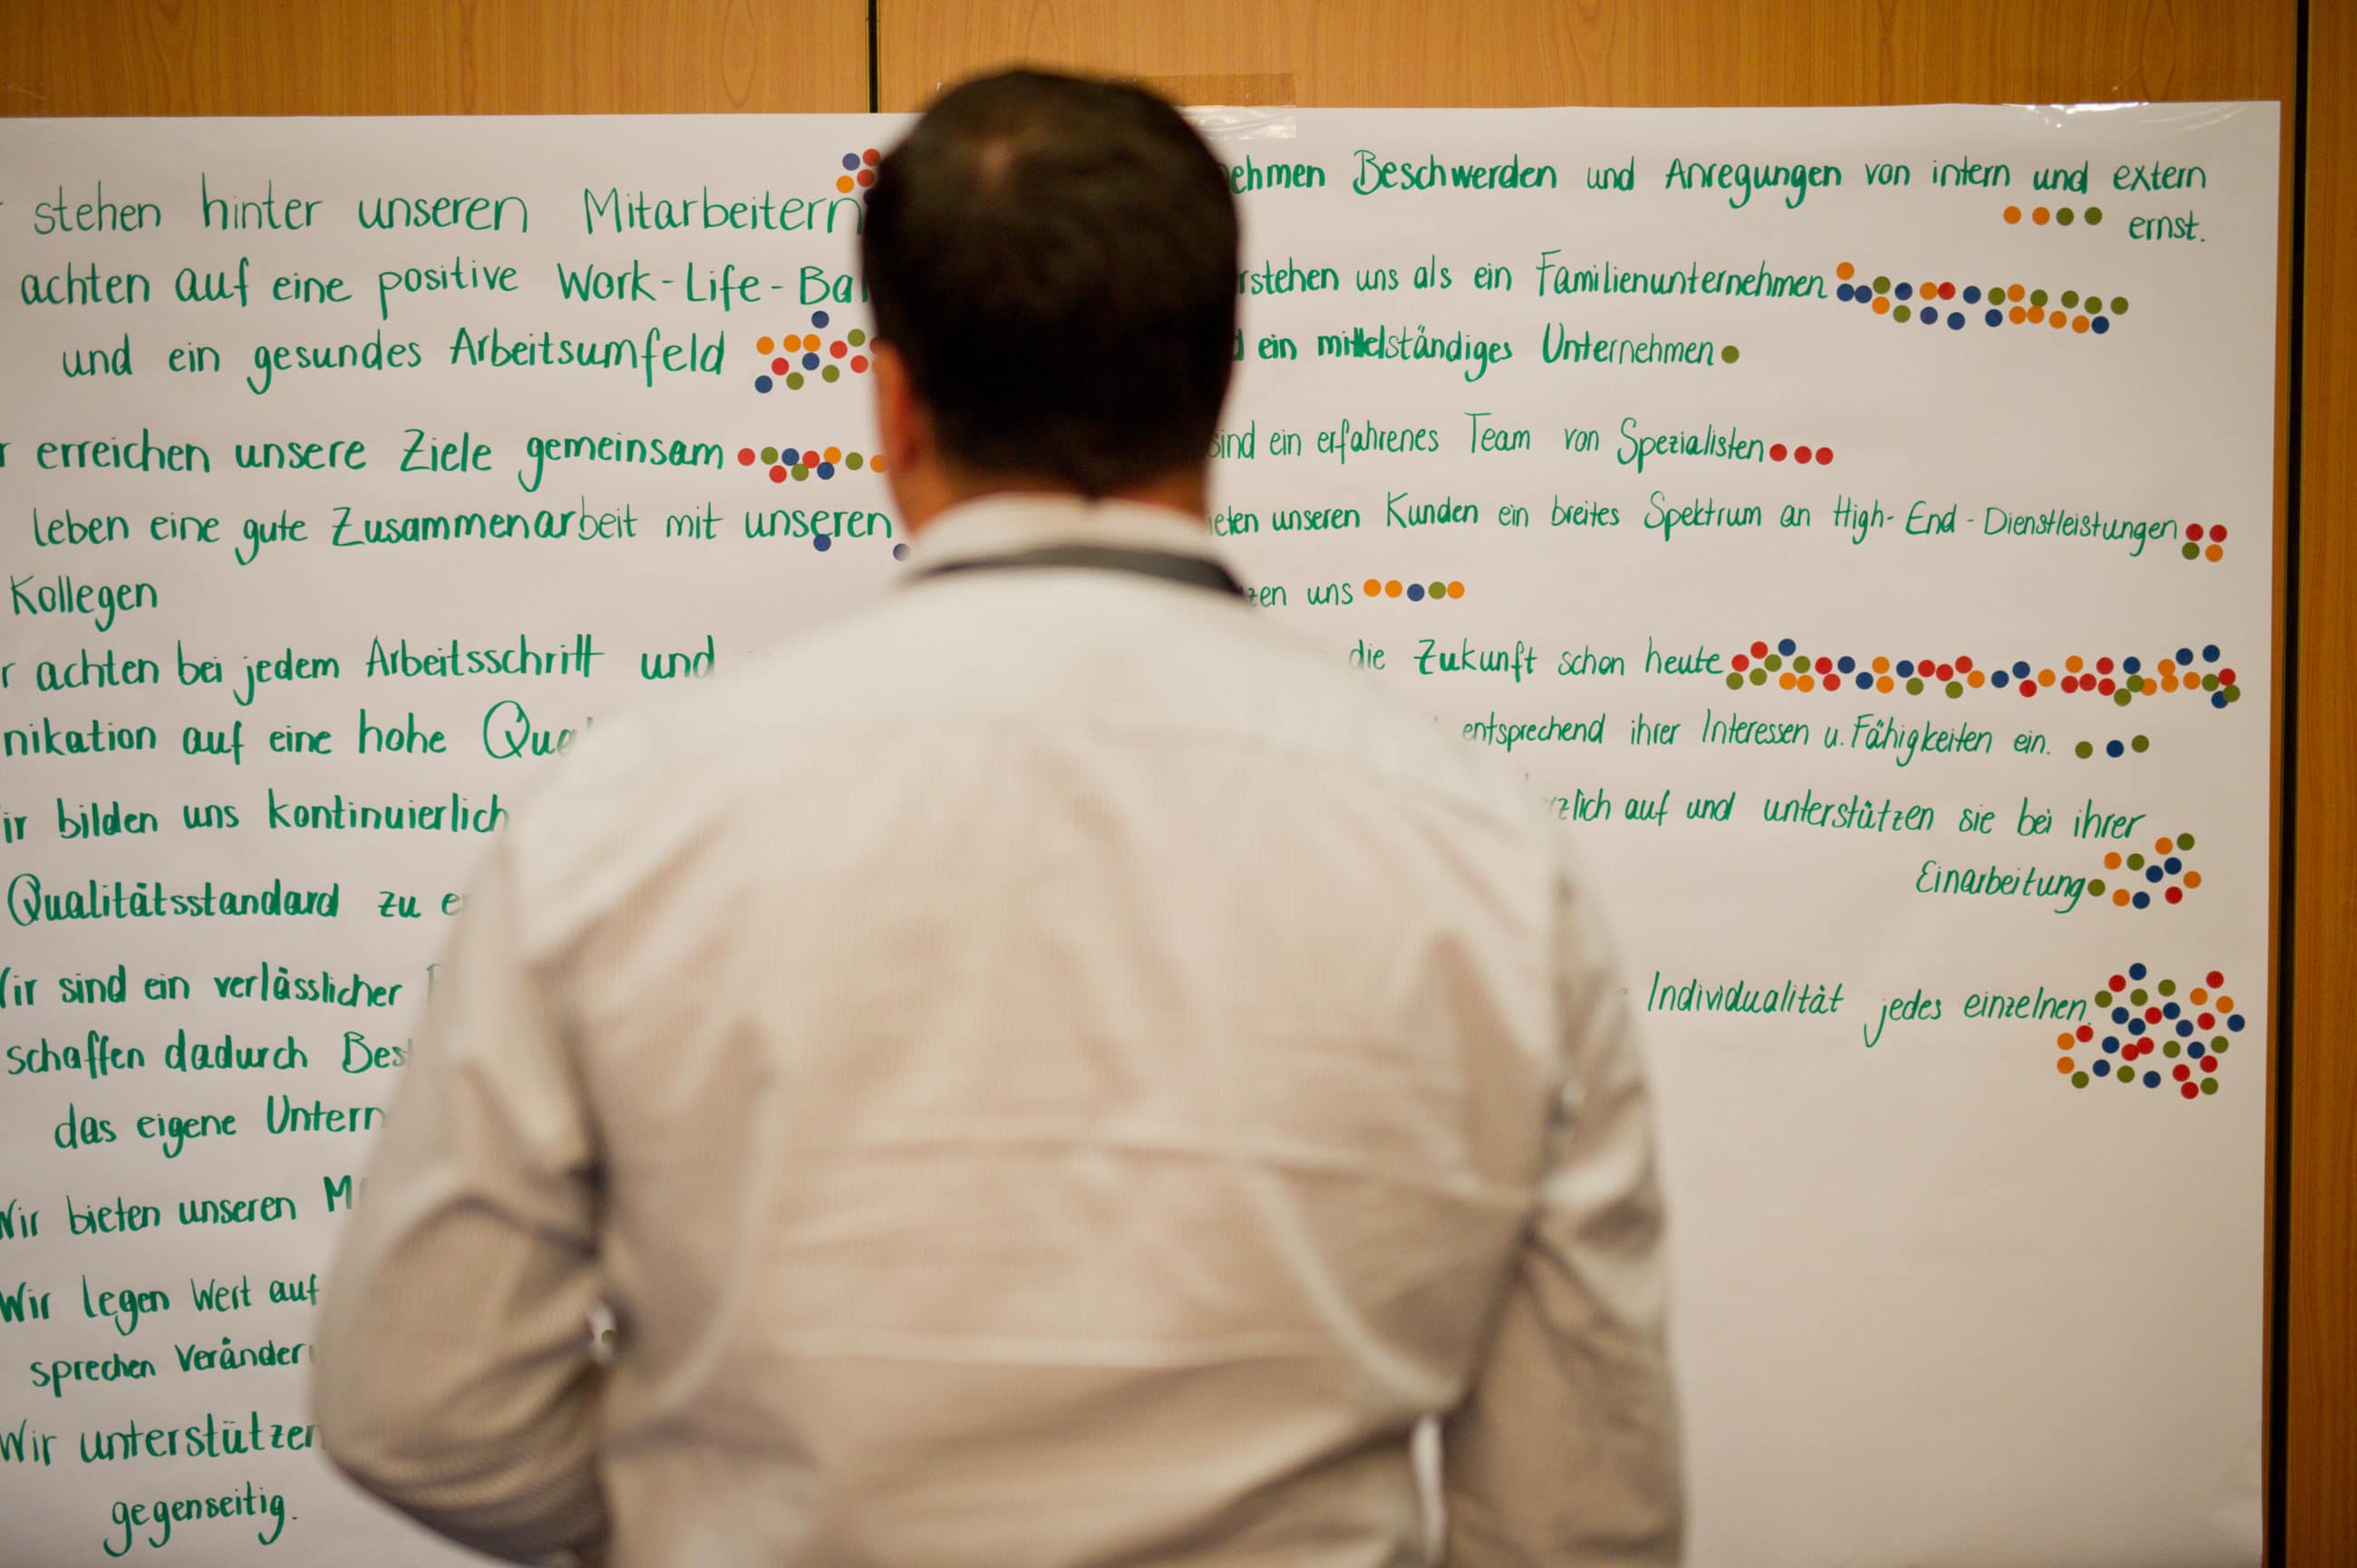 stehen hinter unseren Mitarbeitern
achten auf eine positive Work-Life-
und ein gesundes Arbeitsumfeld
erreichen unsere Ziele gemeinsam
leben eine gute Zusammenarbeit mit unseren
Kollegen
achten bei jedem Arbeitsschritt und
auf eine hohe
bilden uns kontinuierlich
Qualitätsstandard zu
sind ein verlässlicher
schaffen dadurch
das eigene
Wir bieten unseren
Wir legen Wert auf
sprechen
Wir unterstützen
gegenseitig.
Beschwerden und Anregungen von intern und extern
ernst.
uns als ein Familienunternehmen
ein mittelständiges Unternehmen
sind ein erfahrenes Team von Spezialisten
unseren Kunden ein breites Spektrum an High-End-Dienstleistungen
uns
die Zukunft schon heute
entsprechend ihrer Interessen u. Fähigkeiten ein.
auf und unterstützen sie bei ihrer
Einarbeitung
Individualität jedes einzelnen.